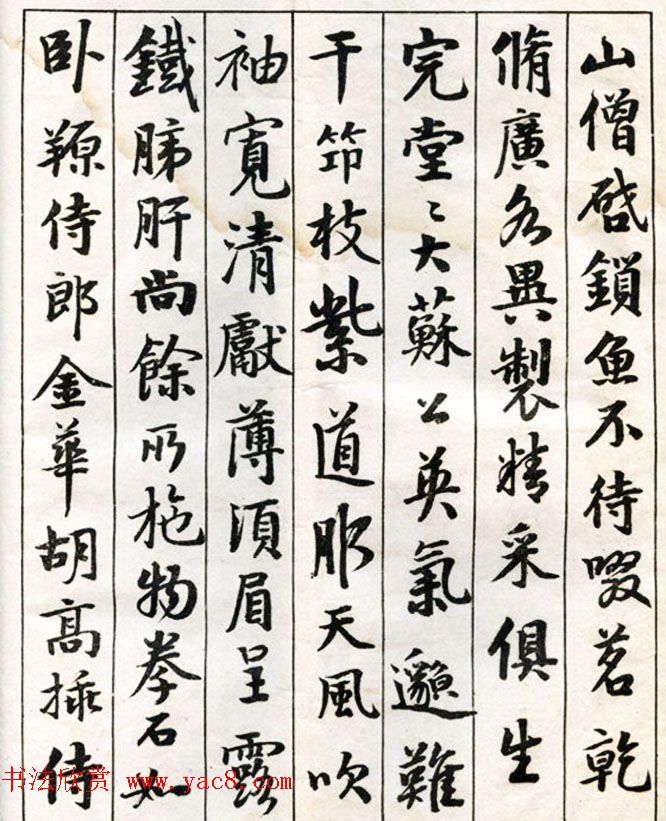 山僧啓鎖魚不待啜茗乾
脩廣各異製精采俱生
完堂〻大蘇公英氣邈難
干筇枝紫道服天風吹
袖寬清獻薄須眉呈露
鐵肺肝尚餘所拖物拳石如
卧羱侍郎金華胡高插侍
书法欣赏 www.yac8.com